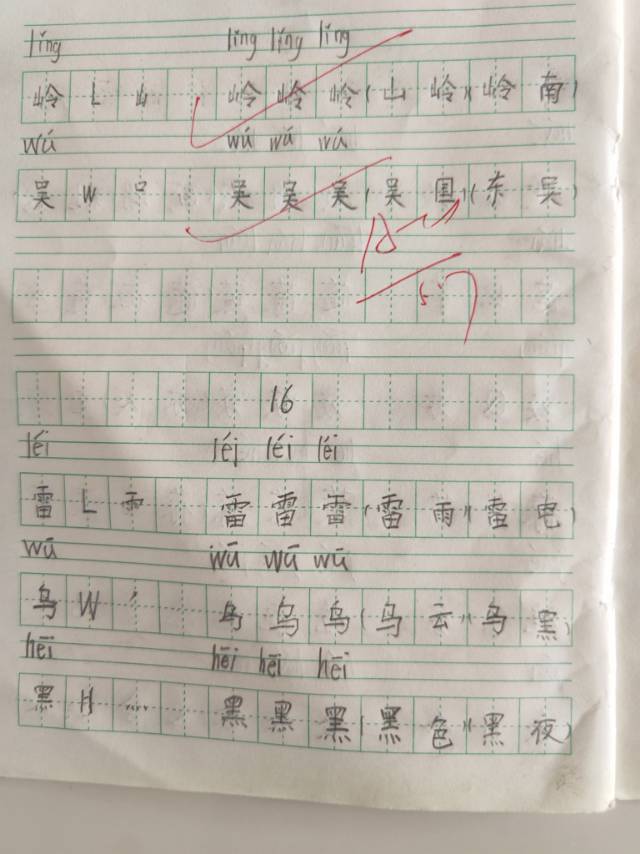 líng líng líng líng
岭 L 山 岭 岭 岭(山 岭)(岭 南)
wú wú wú wú
吴 W 口 吴 吴 吴(吴 国)(东 吴)
16
léi léi léi léi
雷 L 雨 雷 雷 雷(雷 雨)(雷 电)
wū wū wū wū
乌 W ノ 乌 乌 乌(乌 云)(乌 黑)
hēi hēi hēi hēi
黑 H 灬 黑 黑 黑(黑 色)(黑 夜)